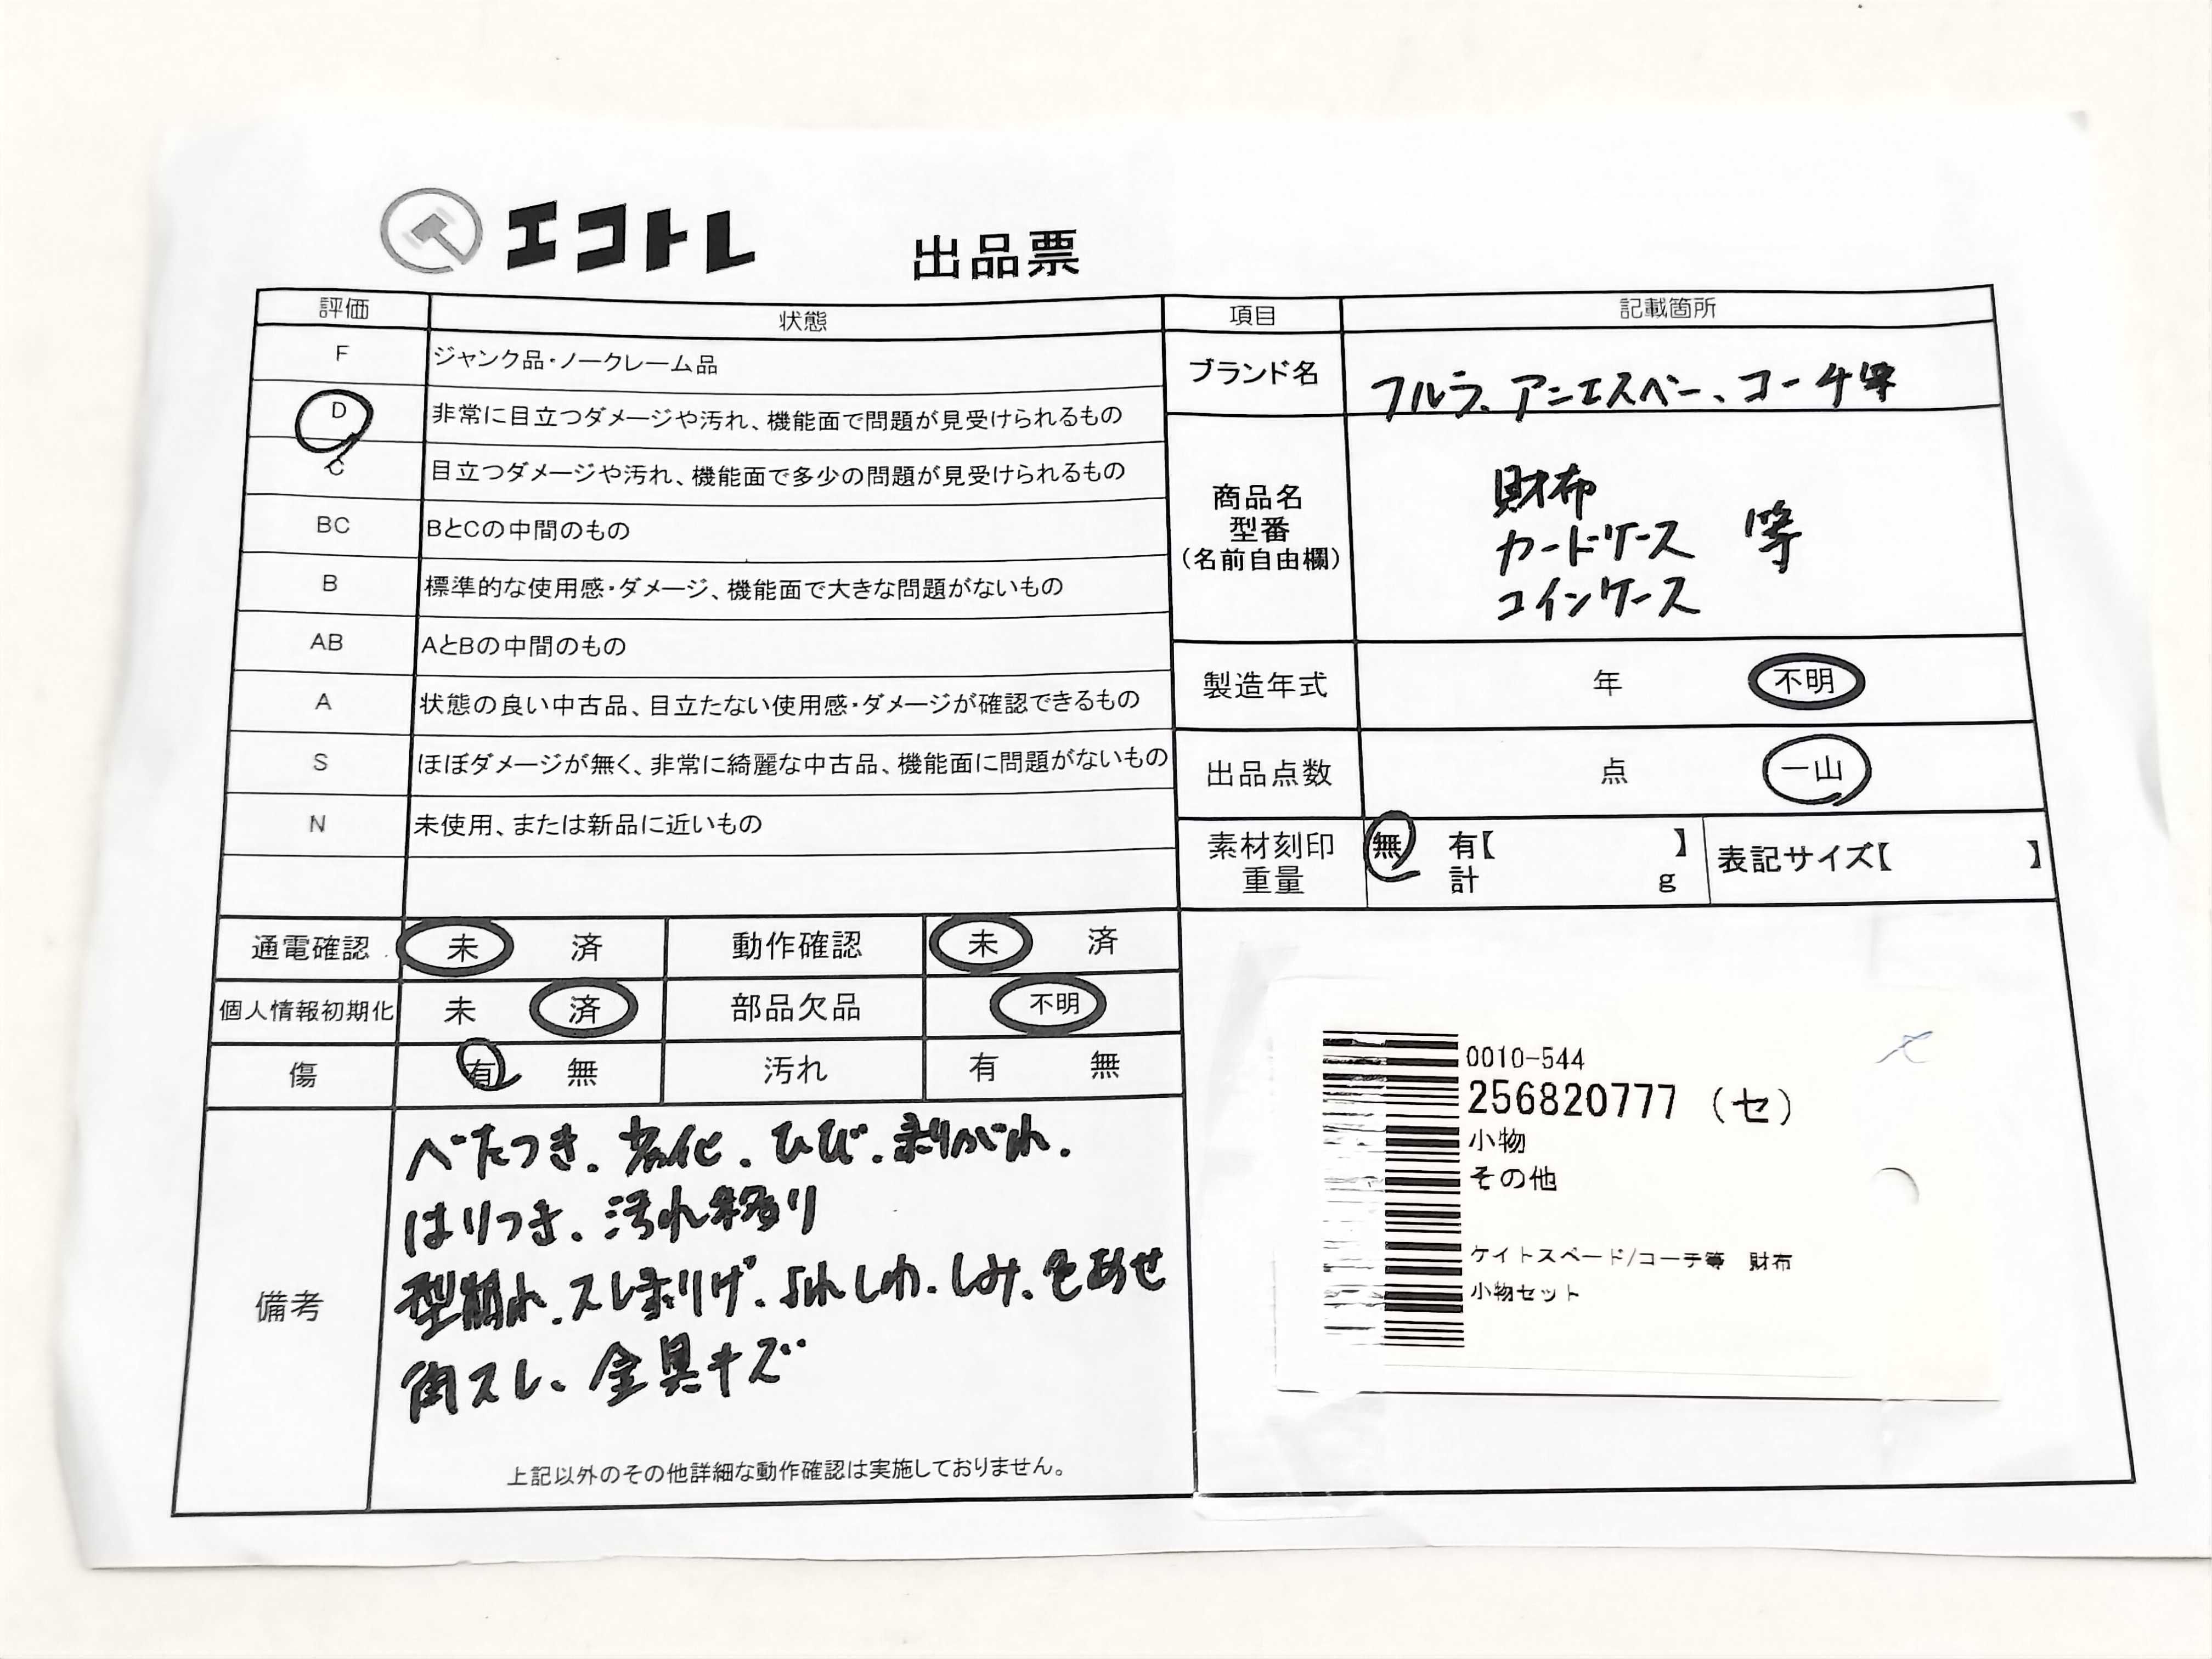 エコトレ 出品票
評価 状態
F ジャンク品・ノークレーム品
D 非常に目立つダメージや汚れ、機能面で問題が見受けられるもの
C 目立つダメージや汚れ、機能面で多少の問題が見受けられるもの
BC BとCの中間のもの
B 標準的な使用感・ダメージ、機能面で大きな問題がないもの
AB AとBの中間のもの
A 状態の良い中古品、目立たない使用感・ダメージが確認できるもの
S ほぼダメージが無く、非常に綺麗な中古品、機能面に問題がないもの
N 未使用、または新品に近いもの
通電確認 未 済 動作確認 未 済
個人情報初期化 未 済 部品欠品 不明
傷 有 無 汚れ 有 無
備考
べたつき、劣化、ひび、剥がれ、
はりつき、汚れ移り
型崩れ、スレ剥げ、よれしわ、しみ、色あせ
角スレ、金具キズ
上記以外のその他詳細な動作確認は実施しておりません。
項目 記載箇所
ブランド名 フルラ、アニエスベー、コーチ等
商品名
型番
(名前自由欄)
財布
カードケース 等
コインケース
製造年式 年 不明
出品点数 点 一山
素材刻印 無 有【 】 表記サイズ【 】
重量 計 g
0010-544
256820777 (セ)
小物
その他
ケイトスペード/コーチ等 財布
小物セット